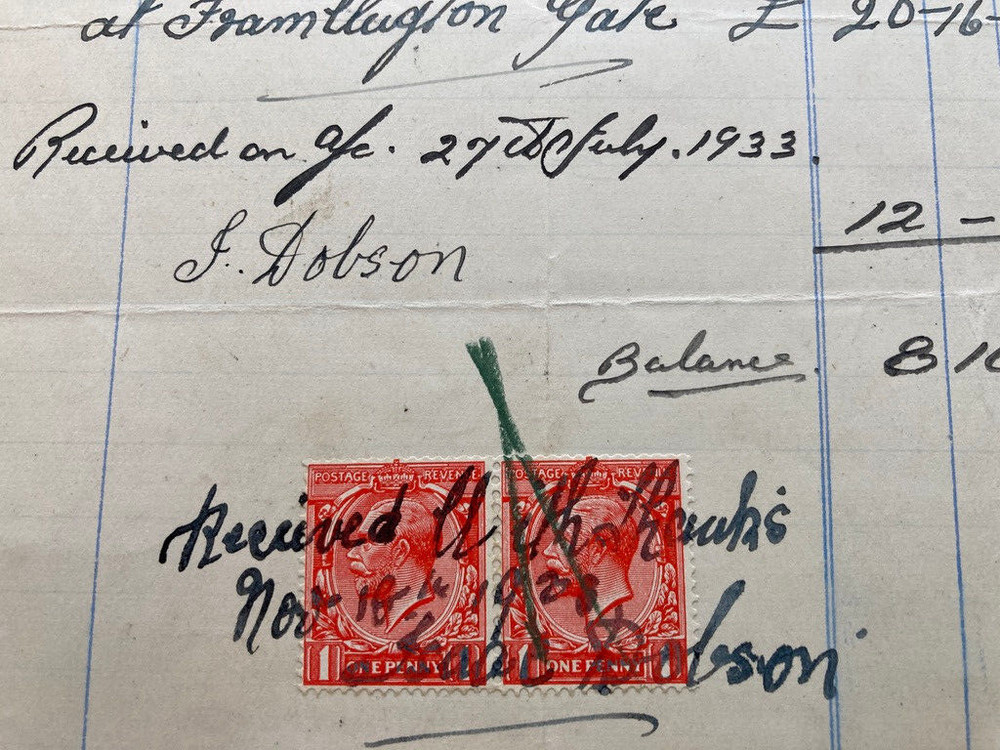 at Framllugton Gate £ 20-16-
Received on a/c. 27th July. 1933.
J. Dobson
12 -
Balance. 8 16
POSTAGE REVENUE POSTAGE REVENUE
Received With Thanks
Nov 18th 19
Dobson
1 ONE PENNY 1 1 ONE PENNY 1